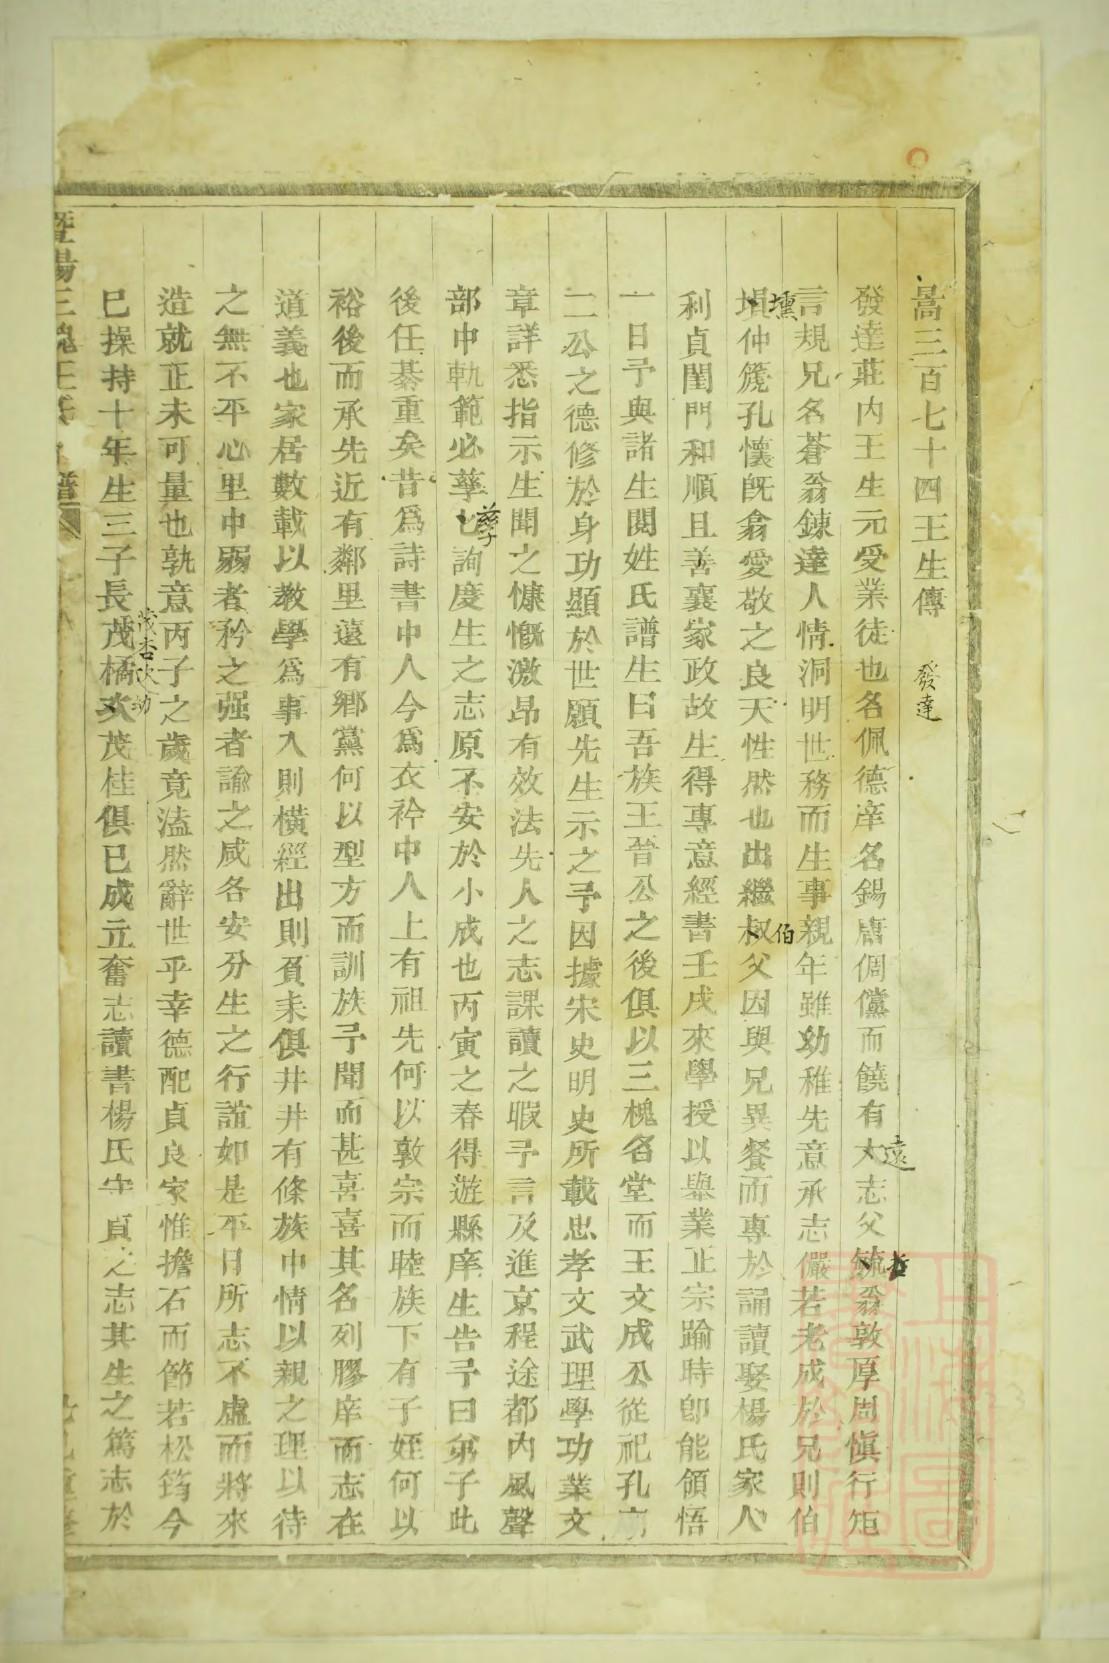 暠三百七十四王生傳 發達
發達莊內王生元受業徒也名佩德庠名錫唐倜儻而饒有大志父毓翁敦厚周愼行矩
遠
哲
言規兄名蒼翁鍊達人情洞明世務而生事親年雖幼稚先意承志儼若老成於兄則伯
壎
塤仲篪孔懷旣翕愛敬之良天性然也出繼叔父因與兄異餐而專於誦讀娶楊氏家人
伯
利貞閨門和順且善襄家政故生得專意經書壬戌來學授以舉業正宗踰時卽能領悟
一日予與諸生閱姓氏譜生曰吾族王晉公之後俱以三槐名堂而王文成公從祀孔廟
二公之德修於身功顯於世願先生示之予因據宋史明史所載忠孝文武理學功業文
章詳悉指示生聞之慷慨激昂有效法先人之志課讀之暇予言及進京程途都內風聲
部中軌範必孳必詢度生之志原不安於小成也丙寅之春得遊縣庠生告予曰弟子此
孳
後任綦重矣昔爲詩書中人今爲衣衿中人上有祖先何以敦宗而睦族下有子姪何以
裕後而承先近有鄰里遠有鄉黨何以型方而訓族予聞而甚喜喜其名列膠庠而志在
道義也家居數載以教學爲事入則橫經出則負耒俱井井有條族中情以親之理以待
之無不平心里中弱者矜之强者諭之咸各安分生之行誼如是平日所志不虛而將來
造就正未可量也孰意丙子之歲竟溘然辭世乎幸德配貞良家惟擔石而節若松筠今
巳操持十年生三子長茂橘次茂桂俱已成立奮志讀書楊氏守貞之志其生之篤志於
茂杏次幼
暨陽三槐王氏 譜